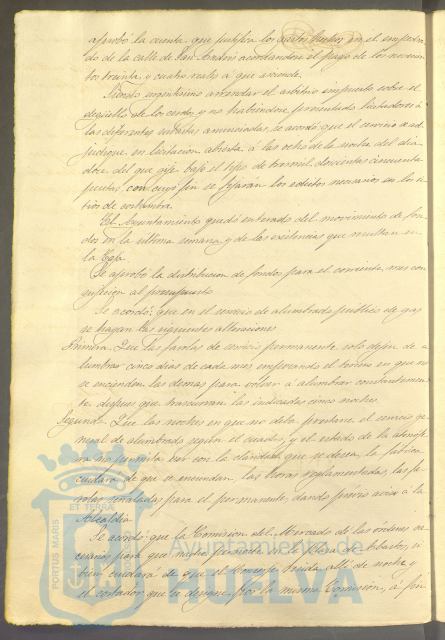 aprobó la cuenta que justifica los gastos hechos en el empedra
do de la calle de San Andrés acordandose el pago de los novecien
tos treinta y cuatro reales a que asciende.
Siendo urgentísimo arrendar el arbitrio impuesto sobre el
degüello de los cerdos, y no habiéndose presentado licitadores a
las diferentes subastas anunciadas, se acordó que el servicio se ad
judique en licitacion abierta a las ocho de la noche del dia
doce del que rije bajo el tipo de tres mil doscientas cincuenta
pesetas, con cuyo fin se fijarán los edictos necesarios en los si
tios de costumbre.
El Ayuntamiento quedó enterado del movimiento de fon
dos en la última semana y de las existencias que resultan en
la Caja.
Se aprobó la distribucion de fondos para el corriente mes con
sujecion al presupuesto.
Se acordó: que en el servicio de alumbrado público de gas
se hagan las siguientes alteraciones
Primera. Que las farolas de servicio permanente solo dejen de a
lumbrar cinco dias de cada mes empezando el turno en que no
se encienden las demas para volver a alumbrar constantemen
te despues que trascurran las indicadas cinco noches.
Segunda. Que las noches en que no deba prestarse el servicio ge
neral de alumbrado segun el cuadro, y el estado de la atmosfe
ra no permita ver con la claridad que se desea, la fabrica
cuidará de que se enciendan, las horas reglamentadas, las fa
rolas señaladas para el permanente, dando previo aviso a la
Alcaldia
Se acordó que la Comision del Mercado de las órdenes ne
cesarias para que nadie pernocte en la Plaza de Abastos, si
bien cuidará de que el Conserje resida allí de noche y
el cortador que se designe por la misma Comision, a fin
ET TERRA
PORTUS MARIS
CUSTODIA
Ayuntamiento de
HUELVA